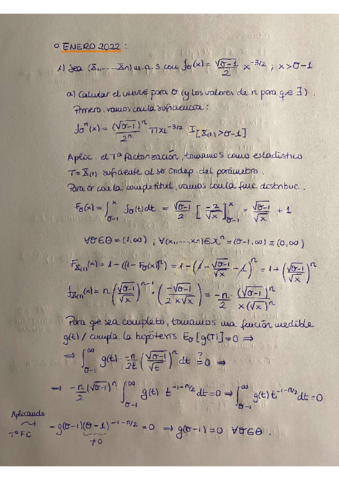 ○ ENERO 2022:
1) Sea (X₁,...,Xn) m.a.s con fθ(x) = √(θ-1)/2 x^(-3/2) ; x > θ-1
a) Calcular el UMVUE para θ (y los valores de n para que ∃).
Primero, vamos con la suficiencia:
fθⁿ(x) = (√(θ-1))ⁿ/2ⁿ Π xi^(-3/2) I[X(1) > θ-1]
Aplic. el Tª factorización, tomamos como estadístico
T = X(1) suficiente al ser indep. del parámetro.
Para ir con la completitud, vamos con la func. distribuc.
Fθ(x) = ∫_{θ-1}^{x} fθ(t)dt = √(θ-1)/2 [-2/√x]_{θ-1}^{x} = -√(θ-1)/√x + 1
∀θ∈Θ = (1,∞) ; ∀(x₁,...,xn) ∈ χⁿ = (θ-1,∞) = (0,∞)
F_X(1)(x) = 1 - (1-Fθ(x))ⁿ = 1 - (1 - √(θ-1)/√x - 1)ⁿ = 1 + (√(θ-1)/√x)ⁿ
f_X(1)(x) = n (√(θ-1)/√x)^(n-1) · (-√(θ-1)/(2x√x)) = -n/2 (√(θ-1))ⁿ/(x(√x)ⁿ)
Para que sea completo, tomamos una función medible
g(t) / cumpla la hipótesis Eθ[g(T)] = 0 ⇒
⇒ ∫_{θ-1}^{∞} g(t) · -n/(2t) (√(θ-1)/√t)ⁿ dt ?= 0 ⇒
⇒ -n/2 (√(θ-1))ⁿ ∫_{θ-1}^{∞} g(t) t^(-1-n/2) dt = 0 ⇒ ∫_{θ-1}^{∞} g(t) t^(-1-n/2) dt = 0
Aplicando
TªFC
-g(θ-1)(θ-1)^(-1-n/2) = 0 ⇒ g(θ-1) = 0 ∀θ∈Θ.
≠0